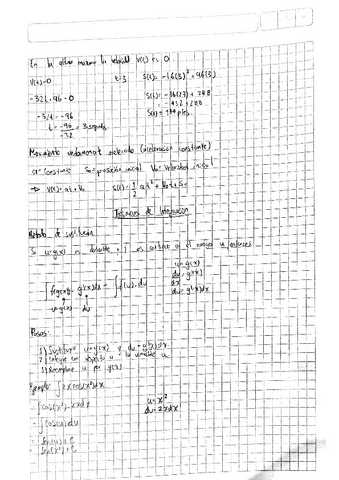 En la altura maxima la velocidad V(t) es 0.
V(t)=0 t=3 S(t)= -16(3)² + 96(3)
-32t+96=0 S(t)= -16(9) + 288
-32t=-96 = -144+288
t= -96/-32 = 3 segundos S(t)= 144 pies
Movimiento uniformemente acelerado (aceleración constante)
a= constante So=posición inicial Vo= Velocidad inicial
→ V(t)= at+Vo S(t)= 1/2 at² + Vot + So
Técnicas de Integración
Método de sustitución
Si u=g(x) es derivable y f es continua en el rango u entonces
∫f(g(x))·g'(x)dx = ∫f(u)·du
u=g(x)
du/dx = g'(x)
du=g'(x)dx
u=g(x) du
Pasos:
1) Sustituye u=g(x) y du=g'(x)dx.
2) Integre con respecto a la variable u
3) Reemplace u por g(x)
Ejemplo: ∫2xcos(x²)dx
∫cos(x²)·2xdx u=x²
du=2xdx
=∫cos(u)du
= sen(u)+C
= sen(x²)+C